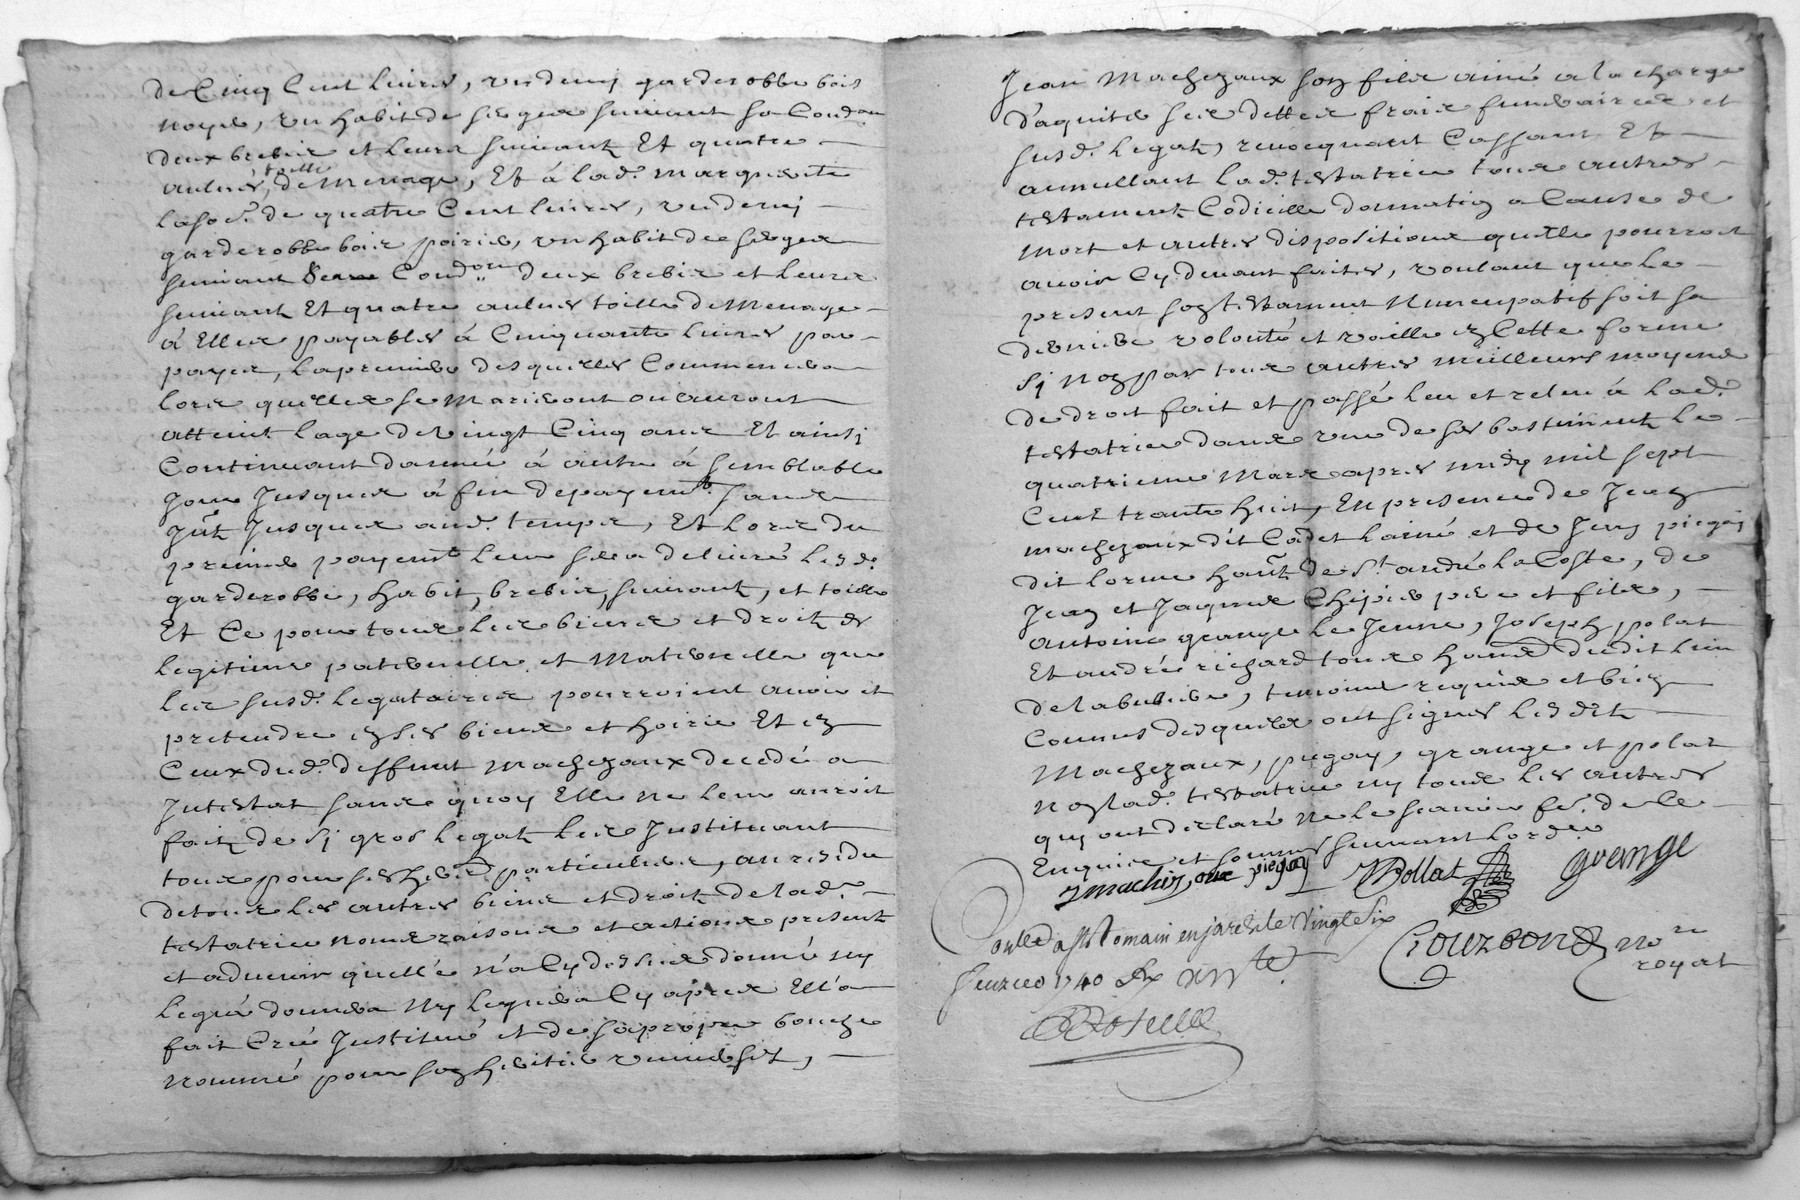 de Cinq Cent livres, un demi garderobbe bois
noyer, un habit de serges suivant sa Condon
deux brebis et leurs suivant Et quatre
aulnes toille de menage, Et à lad. marguerite
la so.e de quatre Cent livres, un demi
garderobbe bois poirier, un habit des serges
suivant Condon deux brebis et leurs
suivant Et quatre aulnes toille de menage
à Elles payables à Cinquante livres par
payes, la premiere desquelles Commencera
lors quelles se Marieront ou auront
atteint lage de vingt Cinq ans Et ainsi
Continuant dannée à autre à semblable
jour Jusques à fin de payemt. sans
Jnt. Jusques aud. temps, Et lors du
premier payemt. leur sera delivré lesd.
garderobbe, habit, brebis, suivant, et toille
Et Ce pour tous les biens et droit de
legitime paternelle et Maternelle que
les susd. legataires pourroient avoir et
pretendre en ses biens et hoirie Et en
Ceux dud. deffunt Machezaux decedé a
Jntestat sans quoy Elle ne leur auroit
fait de si gros legat les Jnstituant
tous pour ses hers. particuliers, au residu
de tous les autres biens et droit de lad.
testatrice noms raisons et actions present
et advenir quelle n'a Cy dessus donné ny
legué donnera ny leguera Cy apres Ell'a
fait Créé Jnstitué et de sa propre bouche
nommé pour son heritier universel,
Jean Machezaux son fils ainé a la charge
d'aquiter ses dettes frais funeraires et
susd. legat, revocquant Cassant Et
annullant lad. testatrice tous autres
testament Codicille donnation a Cause de
mort et autres dispositions quelle pourroit
avoir Cy devant faites, voulant que le
present son testament Nuncupatif soit sa
derniere volonté et vaille en Cette forme
si non par tous autres meilleurs moyens
de droit fait et passé leu et releu à lad.
testatrice dans une de ses bastiment le
quatrieme Mars apres midy mil sept
Cent trante huit, En presence de Jean
machezaux dit Cadet lainé et de Jean piegay
dit lorme hant. de St. andré la Coste, de
Jean et Jaques Chipier pere et fils,
antoine grange le Jeune, Joseph polat
Et andré richard tous hans. dudit lieu
de labubiere, temoins requis et bien
Connus desquels ont signés lesdit
Machezaux, piegay, grange et polat
non lad. testatrice ny tous les autres
qui ont declaré ne le sçavoir fe. de ce
Enquis et sommés suivant lordce
J machezaux piegay JPollat grange
Conlé a St Romain en jarest le vingt six
Gouzbond Nore
royal